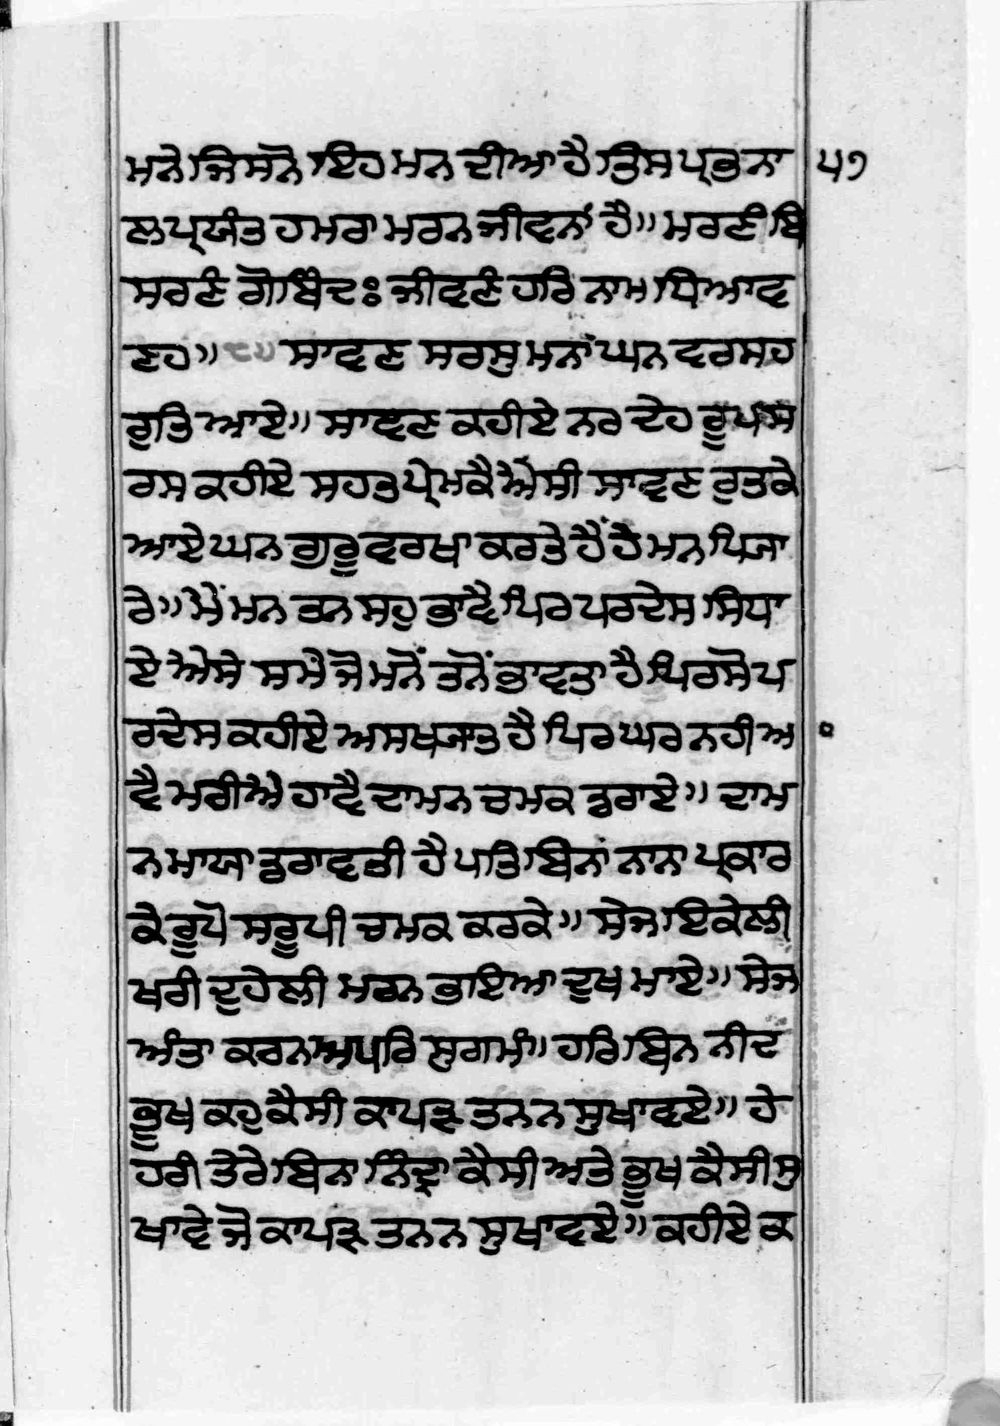 ਮਨੇ ਜਿਸਨੇ ਇਹ ਮਨ ਦੀਆ ਹੈ ਤਿਸ ਪ੍ਰਭ ਨਾ ੫੭
ਲ ਪ੍ਰਯੰਤ ਹਮਰਾ ਮਰਨ ਜੀਵਨਾਂ ਹੈ॥ ਮਰਣੰ ਬਿ
ਸਰਣੰ ਗੋਬਿੰਦਃ ਜੀਵਣੰ ਹਰਿ ਨਾਮ ਧਿਆਵ
ਣਹ॥ ਸਾਵਣ ਸਰਸੁ ਮਨਾਂ ਘਨ ਵਰਸਹ
ਰੁਤਿ ਆਏ॥ ਸਾਵਣ ਕਹੀਏ ਨਰ ਦੇਹ ਰੂਪ ਸ
ਰਸ ਕਹੀਏ ਸਹਤ ਪ੍ਰੇਮਕੈ ਐਸੀ ਸਾਵਣ ਰੁਤਕੇ
ਆਏ ਘਨ ਗੁਰੂ ਵਰਖਾ ਕਰਤੇ ਹੈਂ ਹੇ ਮਨ ਪਿਆ
ਰੇ॥ ਮੈਂ ਮਨ ਤਨ ਸਹੁ ਭਾਵੈ ਪਿਰ ਪਰਦੇਸ ਸਿਧਾ
ਏ ਐਸੇ ਸਮੈ ਜੋ ਮਨੋਂ ਤਨੋਂ ਭਾਵਤਾ ਹੈ ਪਿਰ ਸੋ ਪ
ਰਦੇਸ ਕਹੀਏ ਅਸਖਯਾਤ ਹੈ ਪਿਰ ਘਰ ਨਹੀ ਅ
ਵੈ ਮਰੀਐ ਹਾਵੈ ਦਾਮਨ ਚਮਕ ਡਰਾਏ॥ ਦਾਮ
ਨ ਮਾਯਾ ਡਰਾਵਤੀ ਹੈ ਪਤਿ ਬਿਨਾਂ ਨਾਨਾ ਪ੍ਰਕਾਰ
ਕੇ ਰੂਪੋ ਸਰੂਪੀ ਚਮਕ ਕਰਕੇ॥ ਸੇਜ ਇਕੇਲੀ
ਖਰੀ ਦੁਹੇਲੀ ਮਰਨ ਭਾਇਆ ਦੁਖ ਮਾਏ॥ ਸੇਜ
ਅੰਤਾ ਕਰਨ ਅਪਰਿ ਸੁਗਮਾਂ॥ ਹਰਿ ਬਿਨ ਨੀਦ
ਭੂਖ ਕਹੁ ਕੈਸੀ ਕਾਪੜੁ ਤਨ ਨ ਸੁਖਾਵਏ॥ ਹੇ
ਹਰੀ ਤੇਰੇ ਬਿਨਾ ਨਿੰਦ੍ਰਾ ਕੈਸੀ ਅਤੇ ਭੂਖ ਕੈਸੀ ਸੁ
ਖਾਵੇ ਜੋ ਕਾਪੜੁ ਤਨ ਨ ਸੁਖਾਵਏ॥ ਕਹੀਏ ਕ